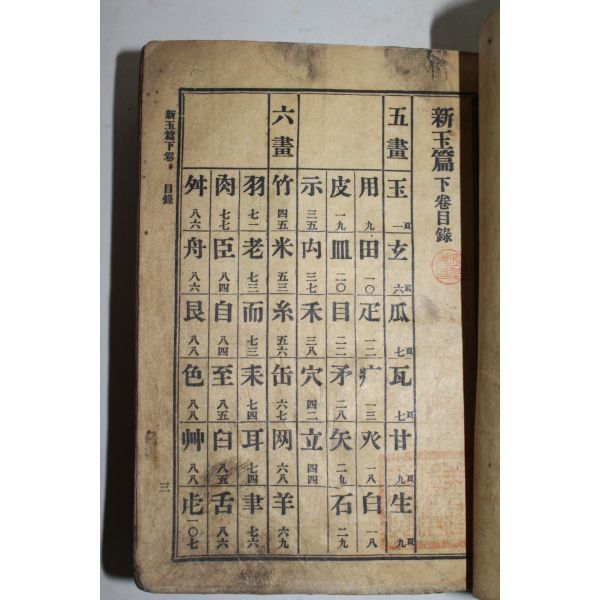 新玉篇下卷目錄
五畫
玉 一頁 玄 六頁 瓜 七頁 瓦 七頁 甘 九頁 生 九頁
用 九 田 一〇 疋 一二 疒 一三 癶 一八 白 一八
皮 一九 皿 二〇 目 二二 矛 二八 矢 二九 石 二九
示 三五 禸 三七 禾 三八 穴 四二 立 四四
六畫
竹 四五 米 五三 糸 五六 缶 六七 网 六八 羊 六九
羽 七一 老 七三 而 七三 耒 七四 耳 七四 聿 七六
肉 七七 臣 八四 自 八四 至 八五 臼 八五 舌 八六
舛 八六 舟 八六 艮 八八 色 八八 艸 八八 虍 一〇七
新玉篇下卷 目錄
三